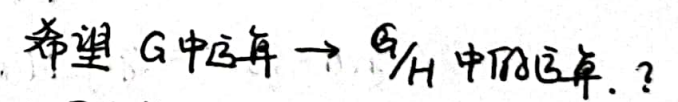 希望 G中运算 → G/H 中的运算.?